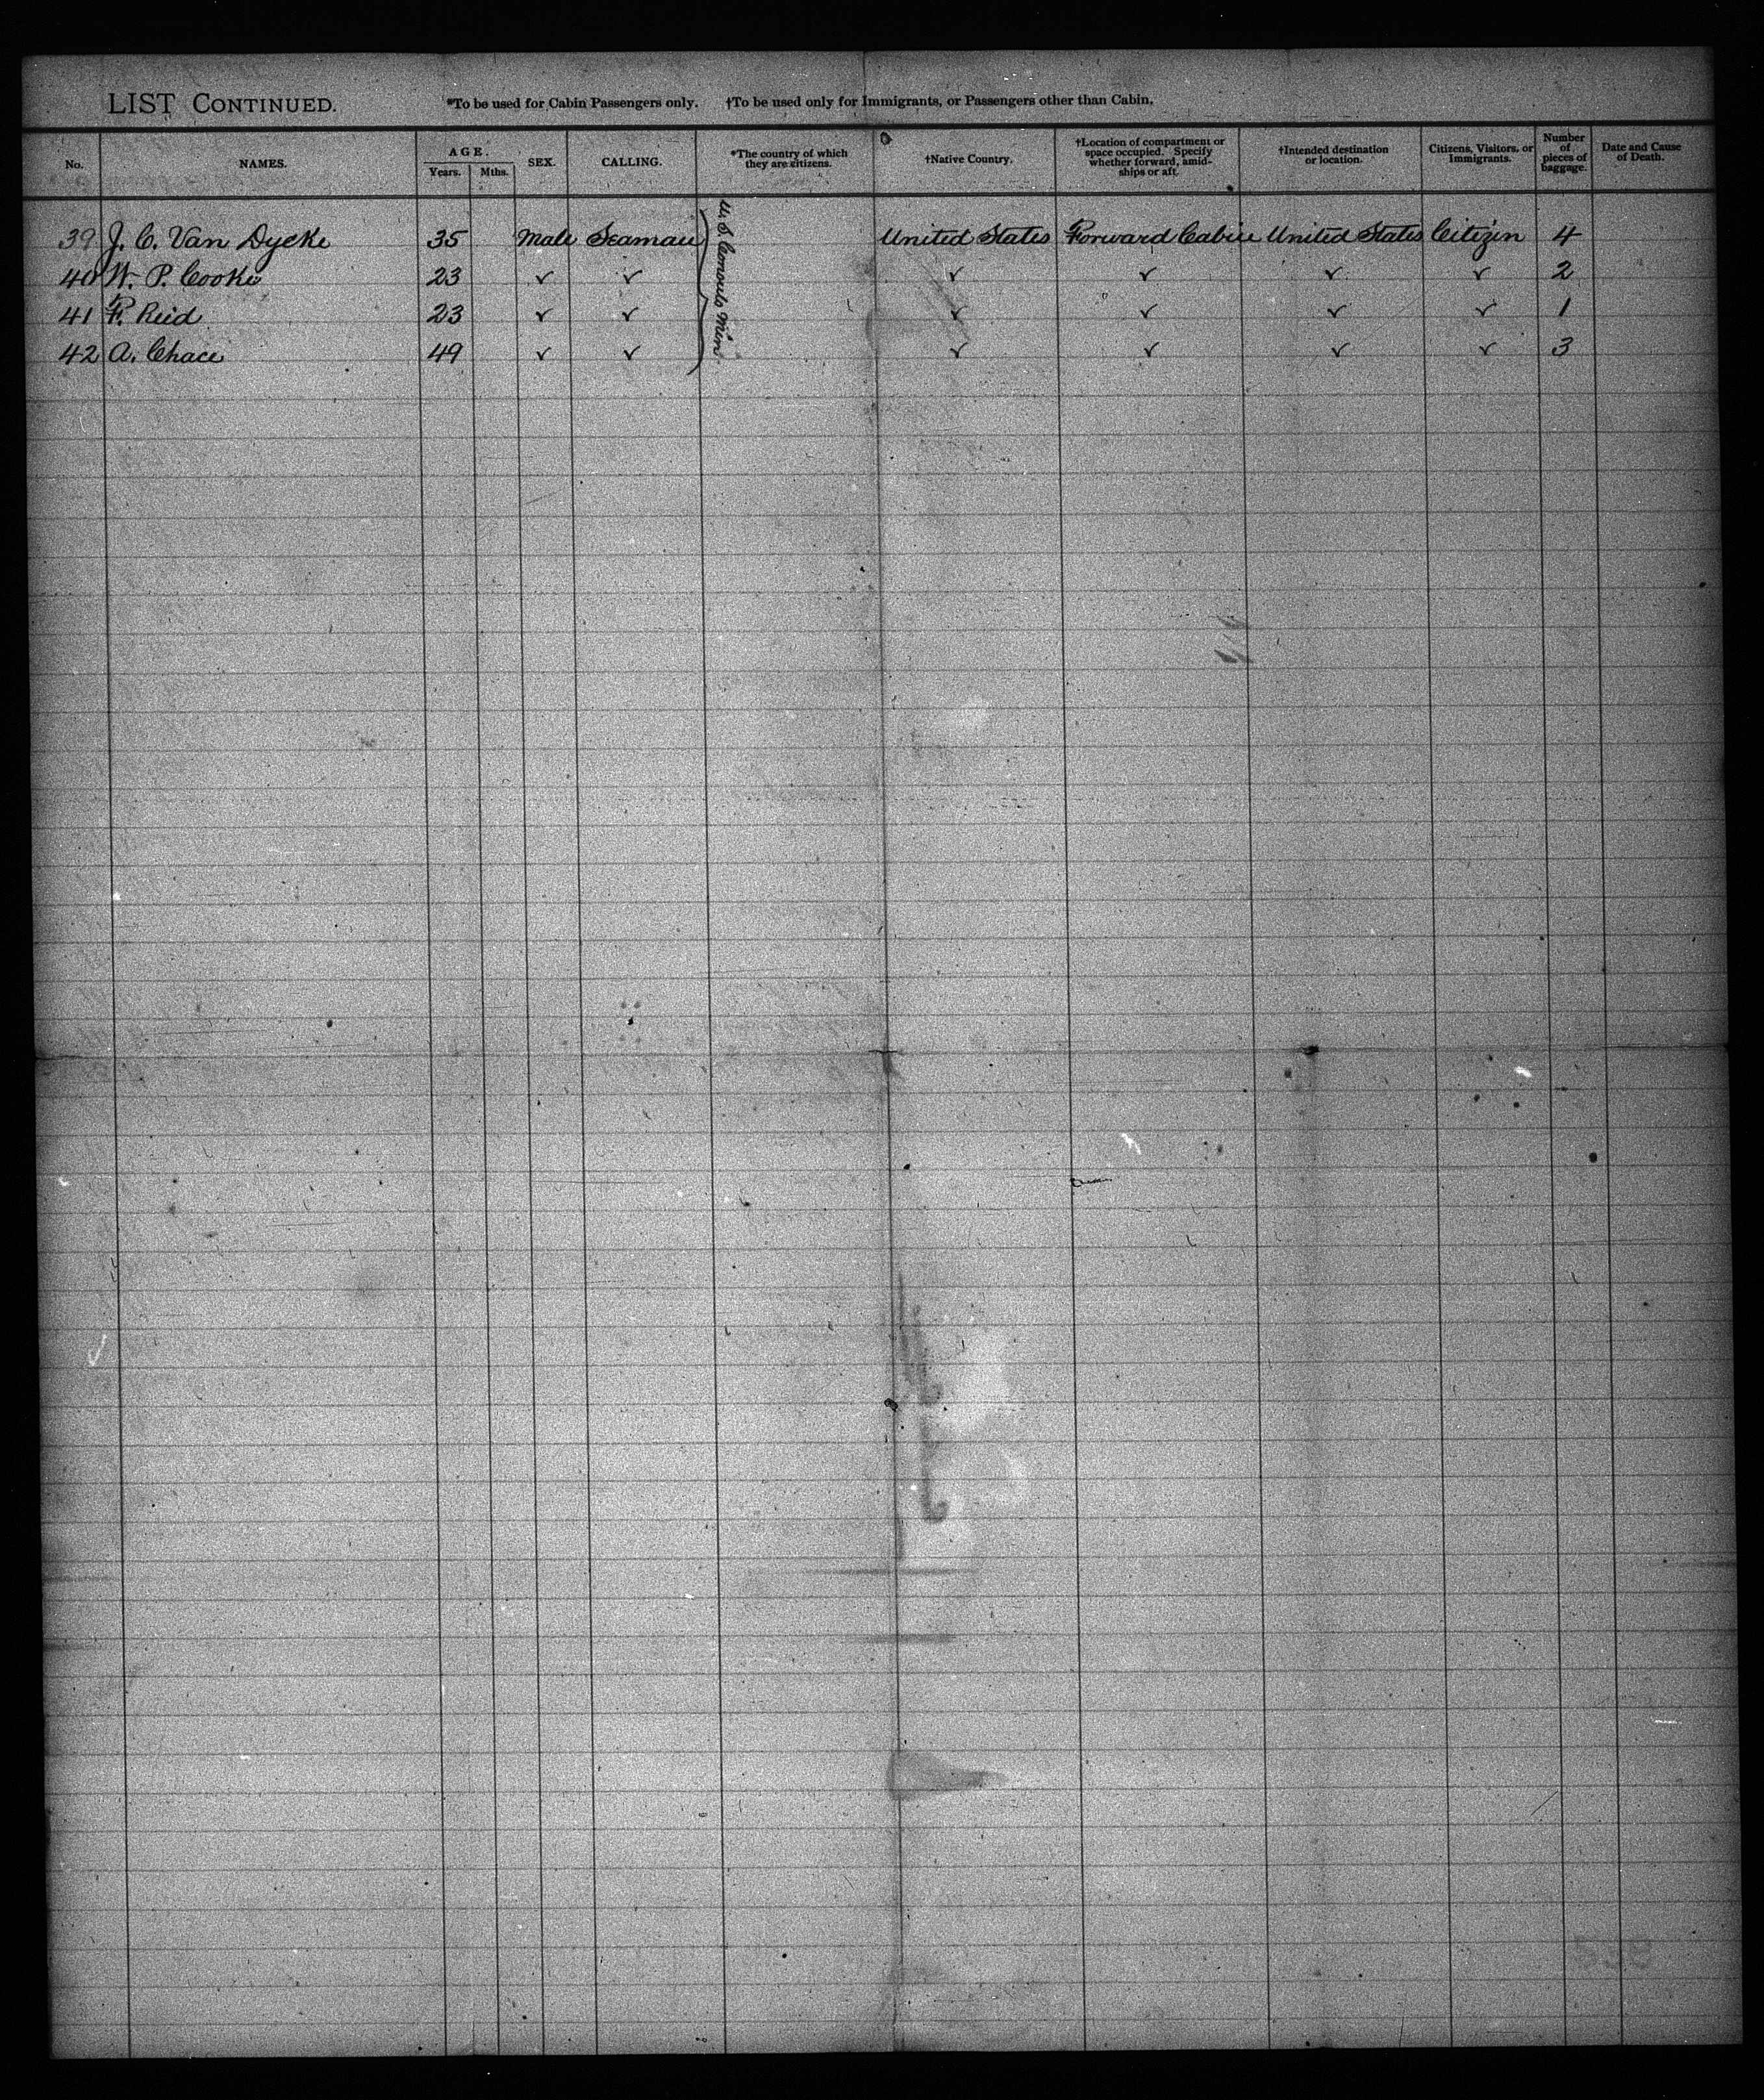 LIST CONTINUED. *To be used for Cabin Passengers only. †To be used only for Immigrants, or Passengers other than Cabin.
No. NAMES. AGE. Years. Mths. SEX. CALLING. *The country of which they are citizens. †Native Country. †Location of compartment or space occupied. Specify whether forward, amidships or aft. †Intended destination or location. Citizens, Visitors, or Immigrants. Number of pieces of baggage. Date and Cause of Death.
39 J. C. Van Dycke 35 Male Seaman United States Forward Cabin United States Citizen 4
40 W. P. Cooke 23 ✓ ✓ ✓ ✓ ✓ ✓ 2
41 F. Reid 23 ✓ ✓ ✓ ✓ ✓ ✓ 1
42 A. Chace 49 ✓ ✓ ✓ ✓ ✓ ✓ 3
U. S.